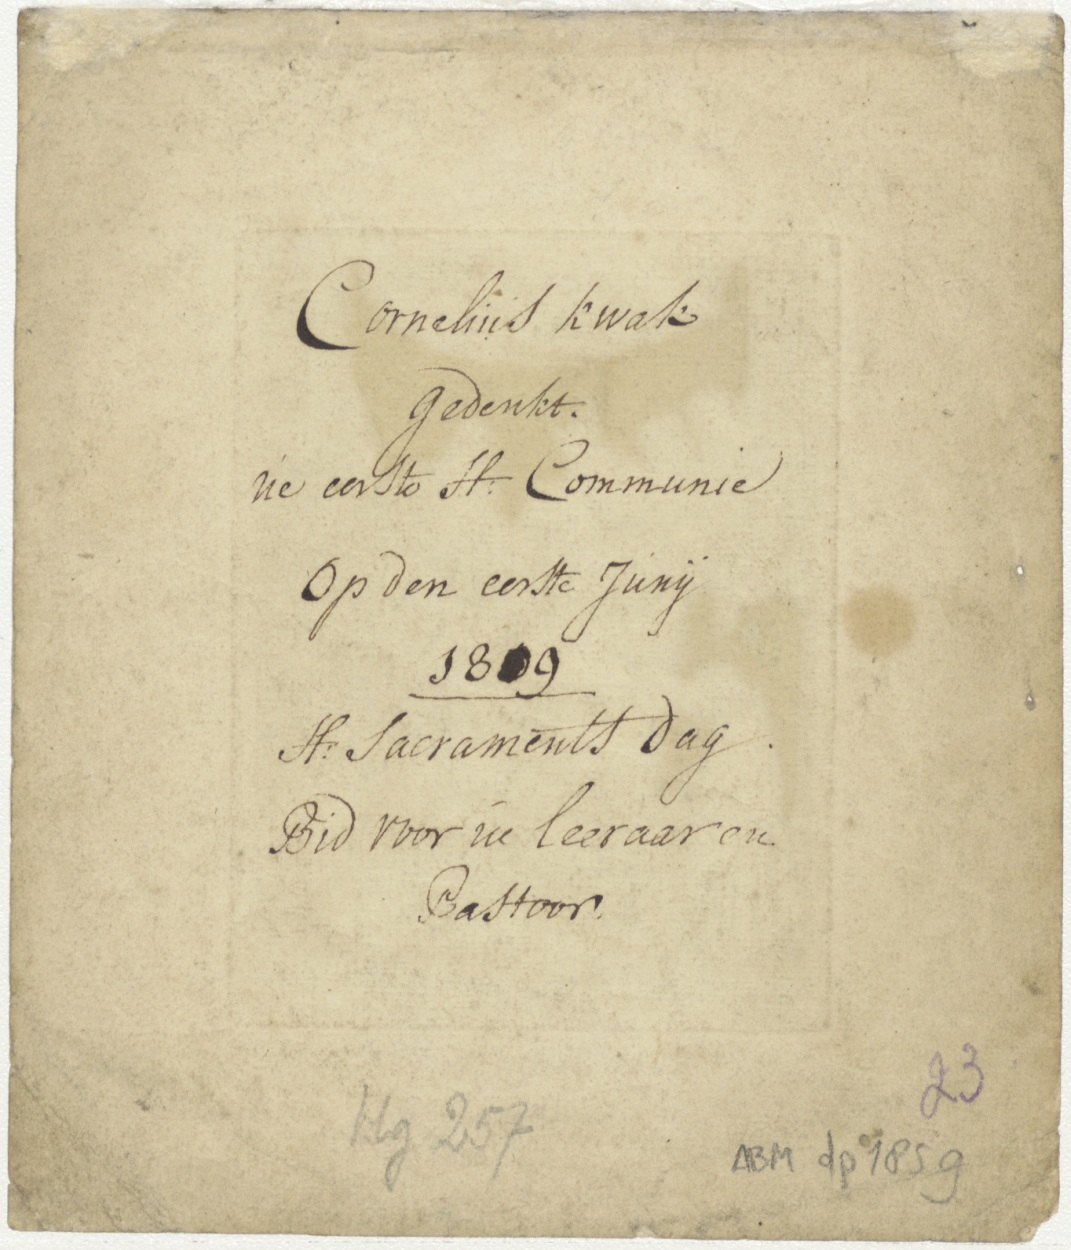 Cornelius kwak
gedenkt.
úe eerste H: Communie
Op den eerste Junij
1809
H: Sacraments Dag.
Bid voor úe leeraar en
Pastoor.
23
Hg 257
ABM dp 1859